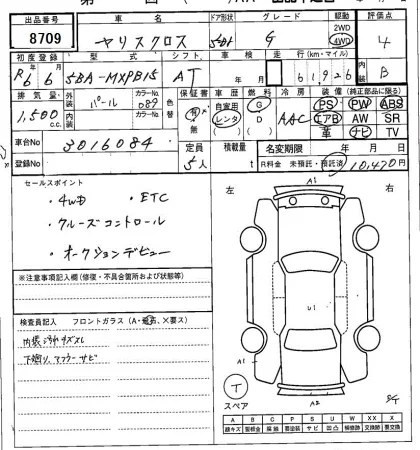 出品番号 車名 ドア形状 グレード 駆動 評価点
8709 ヤリスクロス 5D G 2WD 4WD 4
初度登録 型式 シフト 車検 走行(km・マイル) 内装
R6 6 5BA-MXPB15 AT 年 月 61,926 B
排気量 外装 カラーNo. 色替 保証書 車歴 燃料 冷房 装備(純正部品に限る)
1,500 c.c. パール 089 有・無 自家用 レンタ G D AAC PS PW ABS
内装 カラーNo. エアB AW SR
革 ナビ TV
車台No 3016084 定員 積載量 名変期限 年 月 日
登録No 5人 t R料金 未預託・預託済 10,470円
セールスポイント
・4WD ・ETC
・クルーズコントロール
・オークションデビュー
※注意事項記入欄(修復・不具合箇所および状態等)
検査員記入 フロントガラス(A・飛石、X要ス)
内装汚れキズスレ
下廻り、マフラーサビ
左 右
A1
U1
A1 A1
A2
T
スペア
A B C P S U W X XX
線キズ 要板金 腐蝕 要塗装 サビ 凹凸 補修跡 要交換 交換済